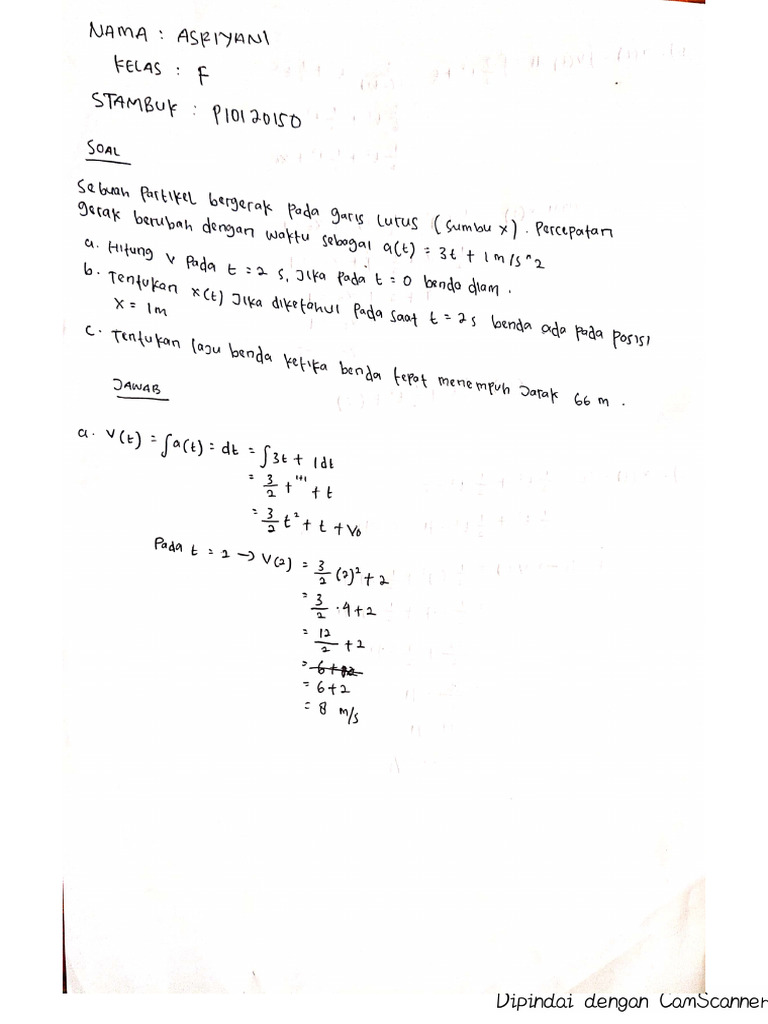 NAMA : ASRIYANI
KELAS : F
STAMBUK : P10120150
SOAL
Sebuah Partikel bergerak pada garis lurus (sumbu x). Percepatan
gerak berubah dengan waktu sebagai a(t) = 3t + 1 m/s^2
a. Hitung v pada t = 2 s, Jika pada t = 0 benda diam.
b. Tentukan x(t) Jika diketahui pada saat t = 2s benda ada pada posisi
x = 1m
c. Tentukan laju benda ketika benda tepat menempuh Jarak 66 m.
JAWAB
a. V(t) = ∫a(t) = dt = ∫3t + 1dt
= 3/2 t¹⁺¹ + t
= 3/2 t² + t + V₀
Pada t = 2 → V(2) = 3/2 (2)² + 2
= 3/2 · 4 + 2
= 12/2 + 2
= 6 + 2
= 8 m/s
Dipindai dengan CamScanner